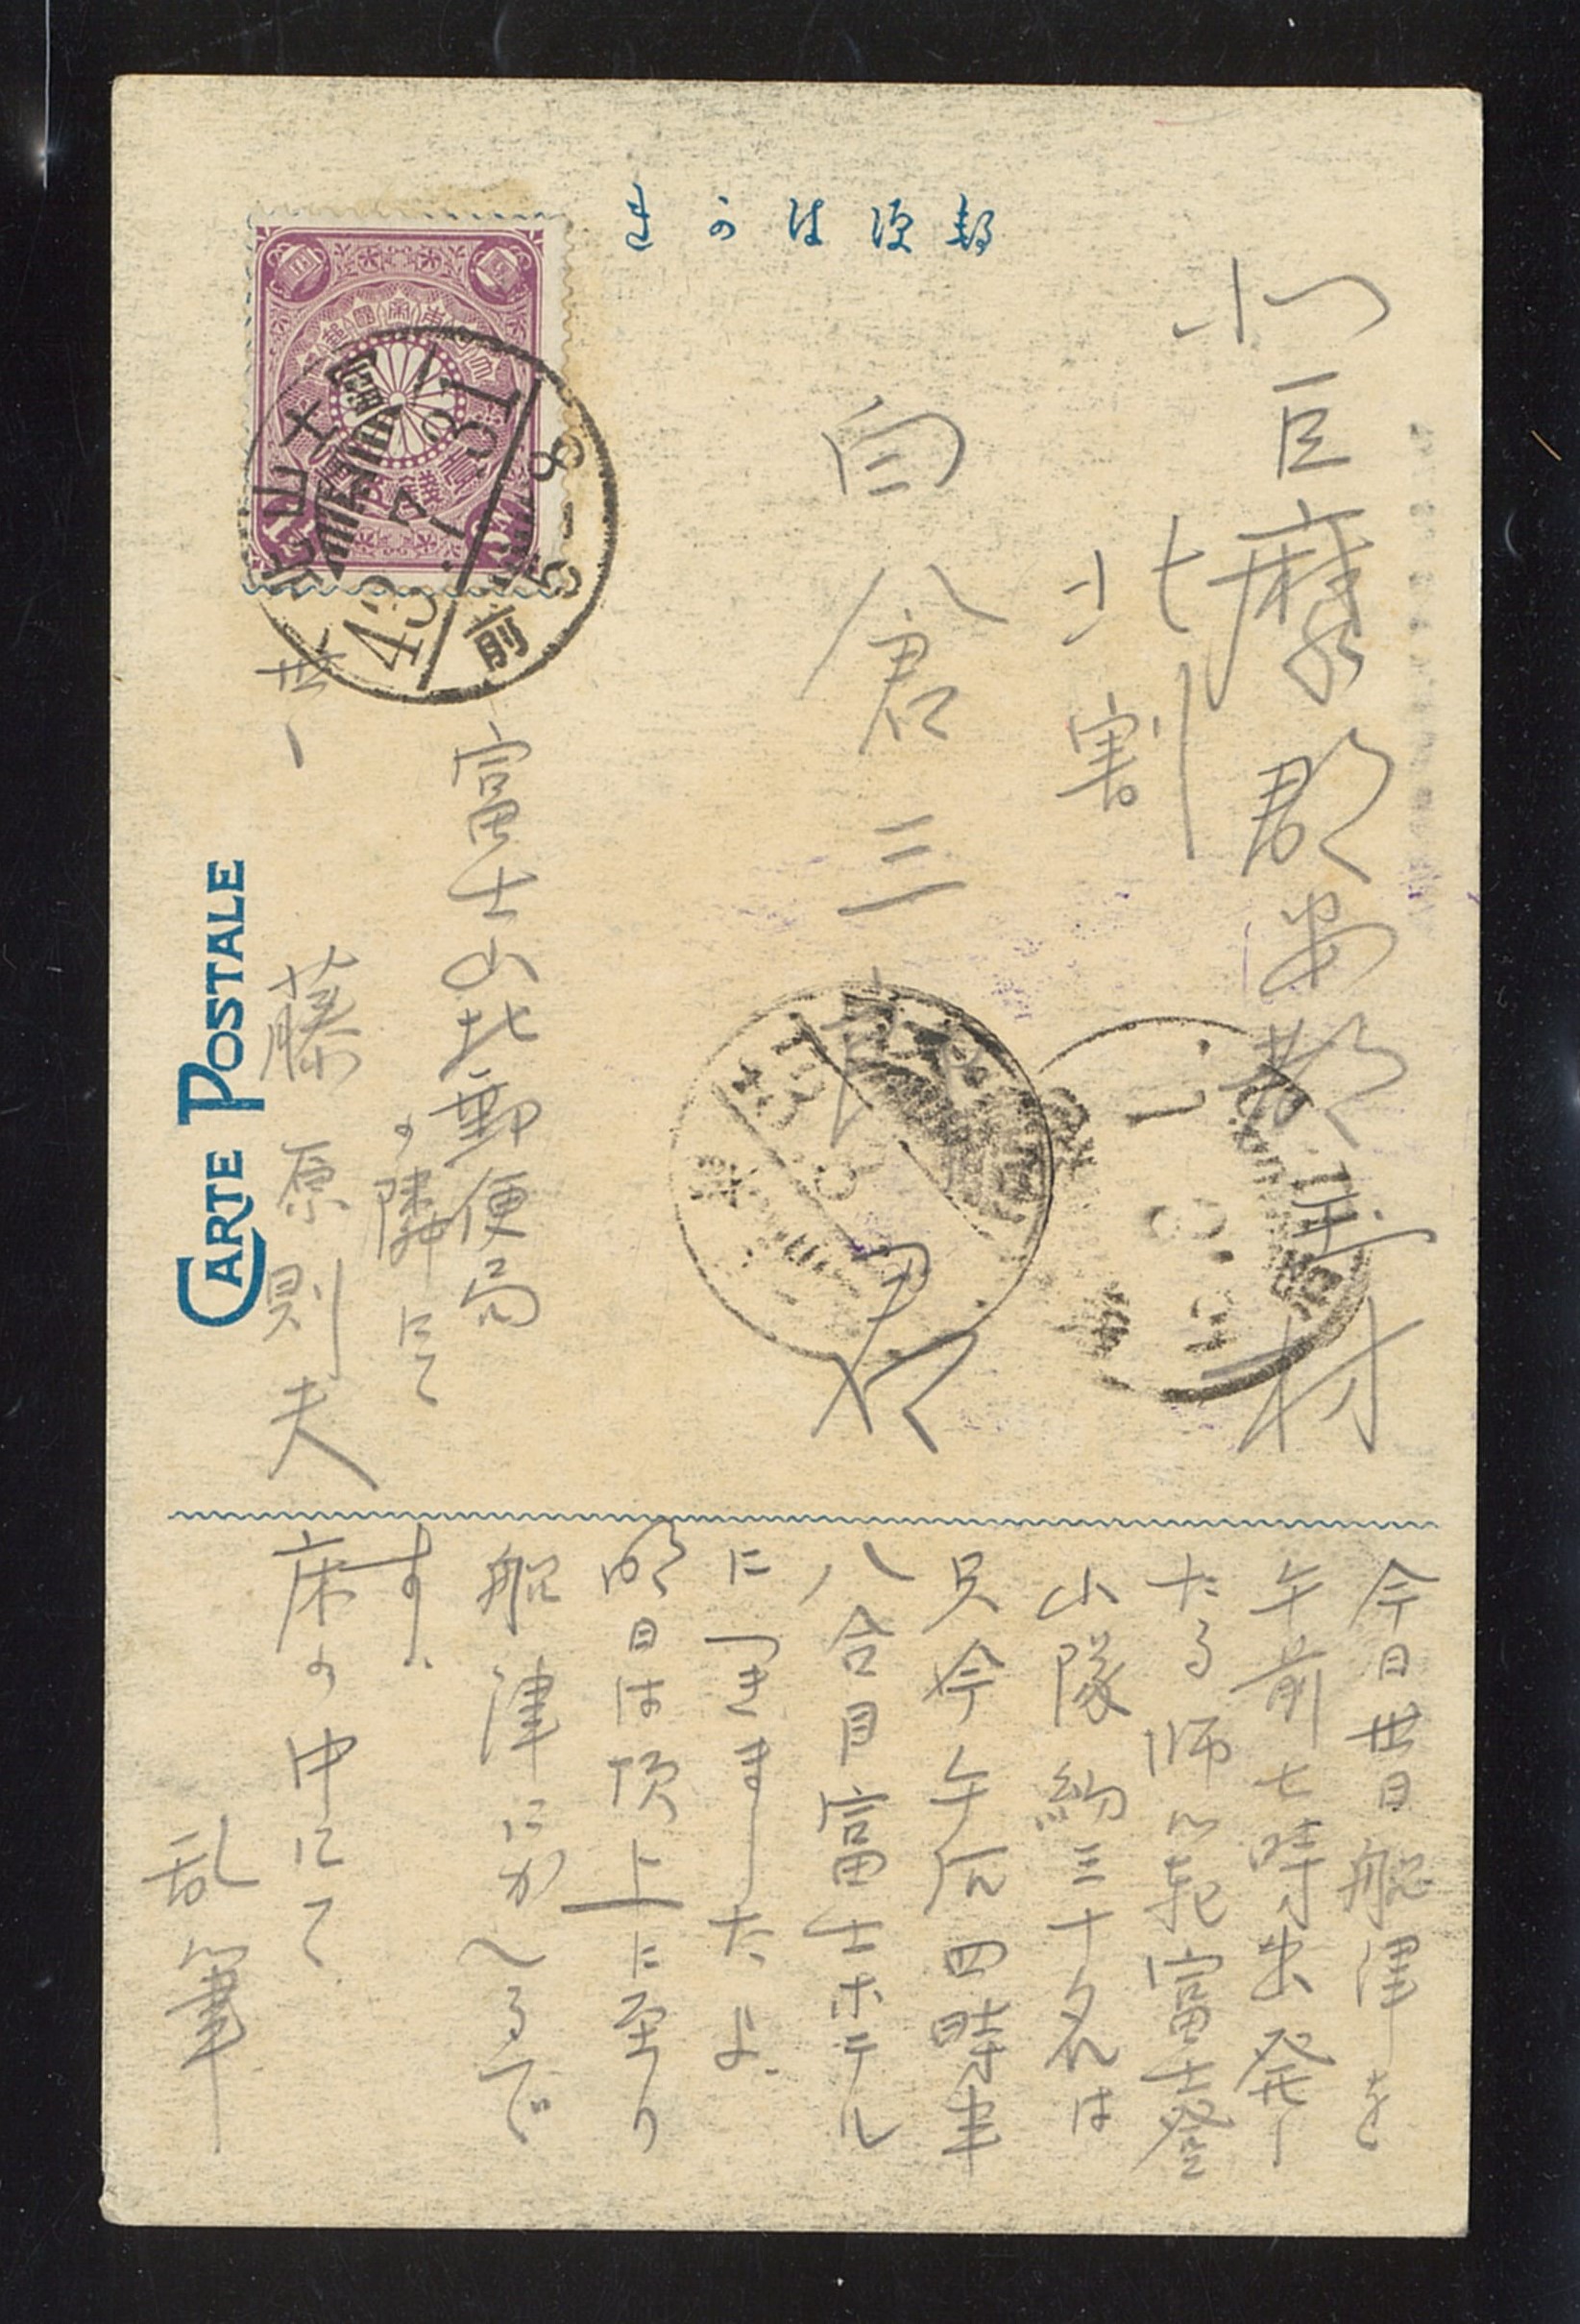 きのは便郵
北巨摩郡安都玉村
北割
白倉三良君
富士山北郵便局
の隣にて
藤原則夫
CARTE POSTALE
富士山北
43.7.31
前8-9
今日丗日船津を
午前七時出発し
たる師範富士登
山隊約三十名は
只今午后四時半
八合目富士ホテル
につきましたよ、
明日は頂上に至り
船津にかへるで
す、
床の中にて
乱筆